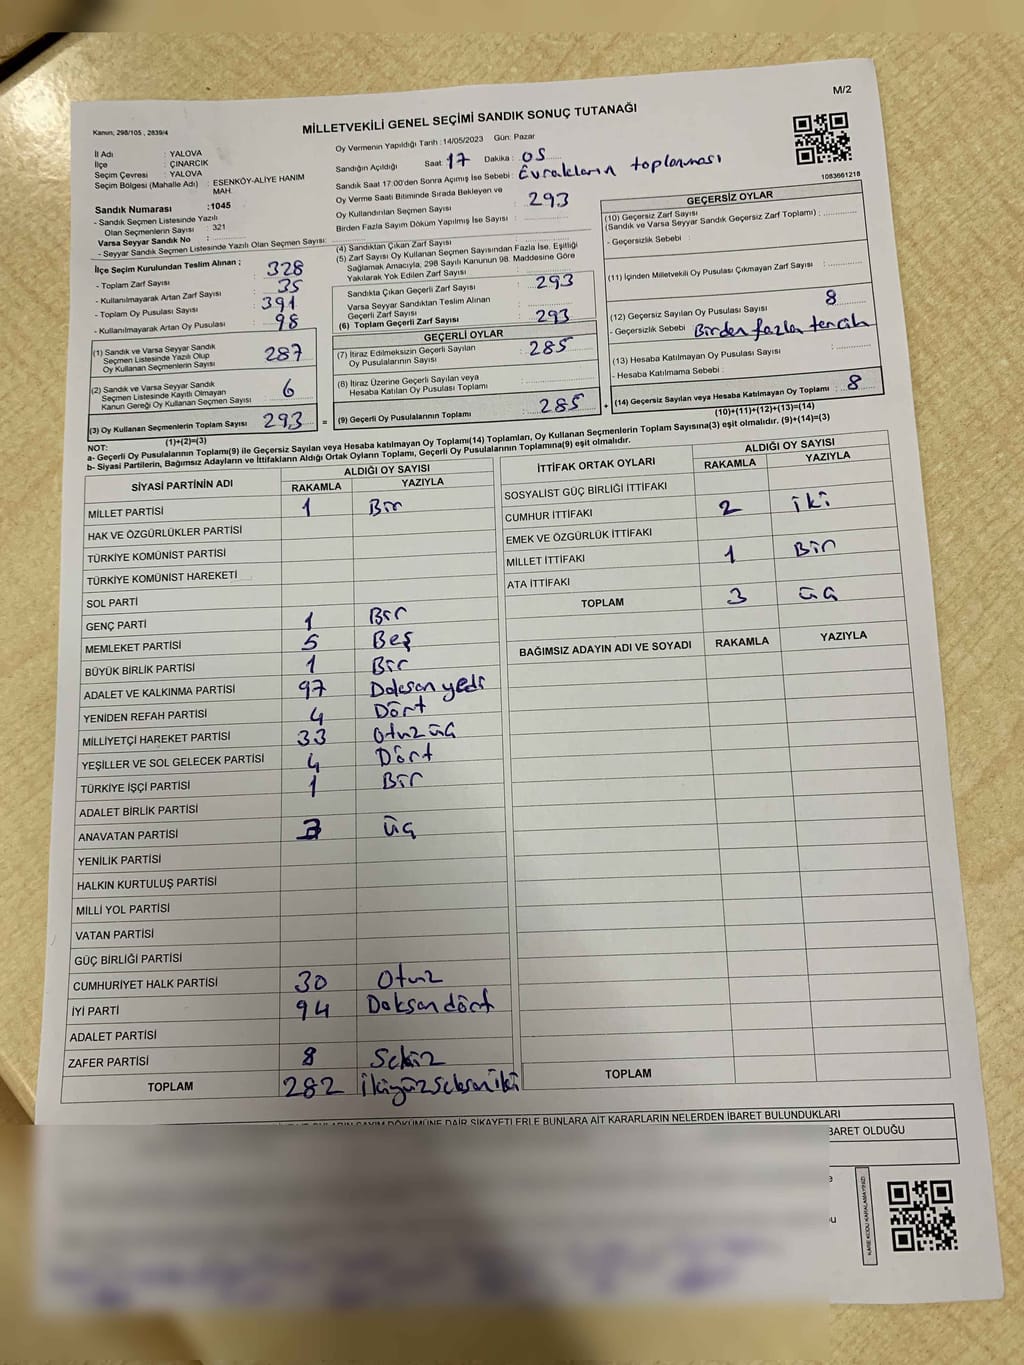 M/2
Kanun; 298/105 , 2839/4
MİLLETVEKİLİ GENEL SEÇİMİ SANDIK SONUÇ TUTANAĞI
İl Adı : YALOVA
İlçe : ÇINARCIK
Seçim Çevresi : YALOVA
Seçim Bölgesi (Mahalle Adı) : ESENKÖY-ALİYE HANIM
MAH.
Sandık Numarası :1045
- Sandık Seçmen Listesinde Yazılı
Olan Seçmenlerin Sayısı : 321
Varsa Seyyar Sandık No :
- Seyyar Sandık Seçmen Listesinde Yazılı Olan Seçmen Sayısı:
Oy Vermenin Yapıldığı Tarih : 14/05/2023 Gün: Pazar
Sandığın Açıldığı Saat: 17 Dakika : 05
Sandık Saat 17:00'den Sonra Açımış İse Sebebi : Evrakların toplanması
Oy Verme Saati Bitiminde Sırada Bekleyen ve
Oy Kullandırılan Seçmen Sayısı : 293
Birden Fazla Sayım Döküm Yapılmış İse Sayısı :
1083661218
İlçe Seçim Kurulundan Teslim Alınan ;
- Toplam Zarf Sayısı : 328
- Kullanılmayarak Artan Zarf Sayısı : 35
- Toplam Oy Pusulası Sayısı : 391
- Kullanılmayarak Artan Oy Pusulası : 98
(1) Sandık ve Varsa Seyyar Sandık
Seçmen Listesinde Yazılı Olup
Oy Kullanan Seçmenlerin Sayısı : 287
(2) Sandık ve Varsa Seyyar Sandık
Seçmen Listesinde Kayıtlı Olmayan
Kanun Gereği Oy Kullanan Seçmen Sayısı : 6
(3) Oy Kullanan Seçmenlerin Toplam Sayısı : 293 =
(1)+(2)=(3)
(4) Sandıktan Çıkan Zarf Sayısı :
(5) Zarf Sayısı Oy Kullanan Seçmen Sayısından Fazla İse, Eşitliği
Sağlamak Amacıyla, 298 Sayılı Kanunun 98. Maddesine Göre
Yakılarak Yok Edilen Zarf Sayısı :
Sandıkta Çıkan Geçerli Zarf Sayısı : 293
Varsa Seyyar Sandıktan Teslim Alınan
Geçerli Zarf Sayısı :
(6) Toplam Geçerli Zarf Sayısı : 293
GEÇERLİ OYLAR
(7) İtiraz Edilmeksizin Geçerli Sayılan
Oy Pusulalarının Sayısı : 285
(8) İtiraz Üzerine Geçerli Sayılan veya
Hesaba Katılan Oy Pusulası Toplamı :
(9) Geçerli Oy Pusulalarının Toplamı : 285 +
GEÇERSİZ OYLAR
(10) Geçersiz Zarf Sayısı
(Sandık ve Varsa Seyyar Sandık Geçersiz Zarf Toplamı) :
- Geçersizlik Sebebi :
(11) İçinden Milletvekili Oy Pusulası Çıkmayan Zarf Sayısı :
(12) Geçersiz Sayılan Oy Pusulası Sayısı : 8
- Geçersizlik Sebebi : Birden fazla tercih
(13) Hesaba Katılmayan Oy Pusulası Sayısı :
- Hesaba Katılmama Sebebi :
(14) Geçersiz Sayılan veya Hesaba Katılmayan Oy Toplamı : 8
(10)+(11)+(12)+(13)=(14)
NOT:
a- Geçerli Oy Pusulalarının Toplamı(9) ile Geçersiz Sayılan veya Hesaba katılmayan Oy Toplamı(14) Toplamları, Oy Kullanan Seçmenlerin Toplam Sayısına(3) eşit olmalıdır. (9)+(14)=(3)
b- Siyasi Partilerin, Bağımsız Adayların ve İttifakların Aldığı Ortak Oyların Toplamı, Geçerli Oy Pusulalarının Toplamına(9) eşit olmalıdır.
SİYASİ PARTİNİN ADI ALDIĞI OY SAYISI
RAKAMLA YAZIYLA
MİLLET PARTİSİ 1 Bir
HAK VE ÖZGÜRLÜKLER PARTİSİ
TÜRKİYE KOMÜNİST PARTİSİ
TÜRKİYE KOMÜNİST HAREKETİ
SOL PARTİ
GENÇ PARTİ 1 Bir
MEMLEKET PARTİSİ 5 Beş
BÜYÜK BİRLİK PARTİSİ 1 Bir
ADALET VE KALKINMA PARTİSİ 97 Doksan yedi
YENİDEN REFAH PARTİSİ 4 Dört
MİLLİYETÇİ HAREKET PARTİSİ 33 Otuz üç
YEŞİLLER VE SOL GELECEK PARTİSİ 4 Dört
TÜRKİYE İŞÇİ PARTİSİ 1 Bir
ADALET BİRLİK PARTİSİ
ANAVATAN PARTİSİ 3 üç
YENİLİK PARTİSİ
HALKIN KURTULUŞ PARTİSİ
MİLLİ YOL PARTİSİ
VATAN PARTİSİ
GÜÇ BİRLİĞİ PARTİSİ
CUMHURİYET HALK PARTİSİ 30 Otuz
İYİ PARTİ 94 Doksan dört
ADALET PARTİSİ
ZAFER PARTİSİ 8 Sekiz
TOPLAM 282 İkiyüzseksen iki
İTTİFAK ORTAK OYLARI ALDIĞI OY SAYISI
RAKAMLA YAZIYLA
SOSYALİST GÜÇ BİRLİĞİ İTTİFAKI
CUMHUR İTTİFAKI 2 iki
EMEK VE ÖZGÜRLÜK İTTİFAKI
MİLLET İTTİFAKI 1 Bir
ATA İTTİFAKI
TOPLAM 3 üç
BAĞIMSIZ ADAYIN ADI VE SOYADI RAKAMLA YAZIYLA
TOPLAM
DÖKÜMÜNE DAİR ŞİKAYETLERLE BUNLARA AİT KARARLARIN NELERDEN İBARET BULUNDUKLARI
BARET OLDUĞU
KARE KODU KARALAMAYINIZ!